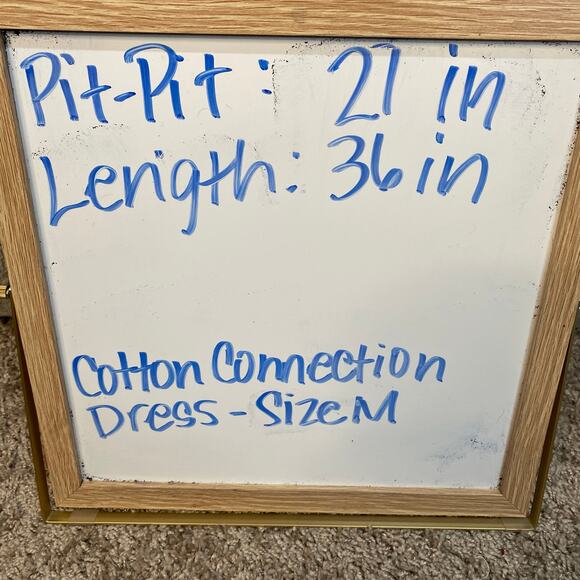 Pit-Pit: 21 in
Length: 36 in
Cotton Connection
Dress - Size M